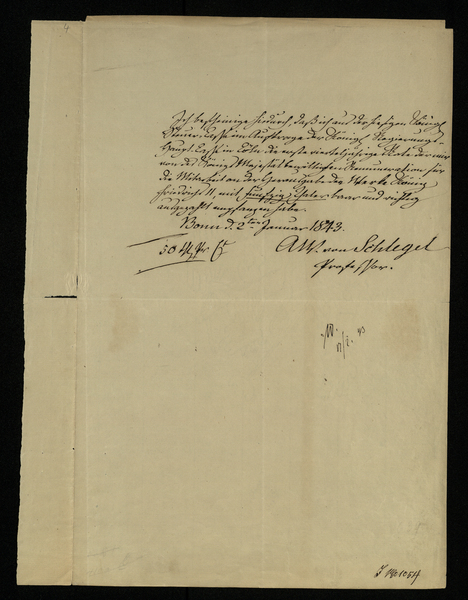 4
Ich bescheinige hiedurch, daß ich aus der hiesigen Königl.
Steuer-Casse im Auftrage der Königl. Regierungs-
Haupt-Casse in Cöln die erste vierteljährige Rate der mir
von des Königs Majestät bewilligten Remuneration für
die Mitarbeit an der Herausgabe der Werke König
Friedrichs II, mit funfzig Thaler baar und richtig
ausgezahlt empfangen habe.
Bonn d. 2ten Januar 1843.
50 Thlr Ct
AW. von Schlegel
Professor.